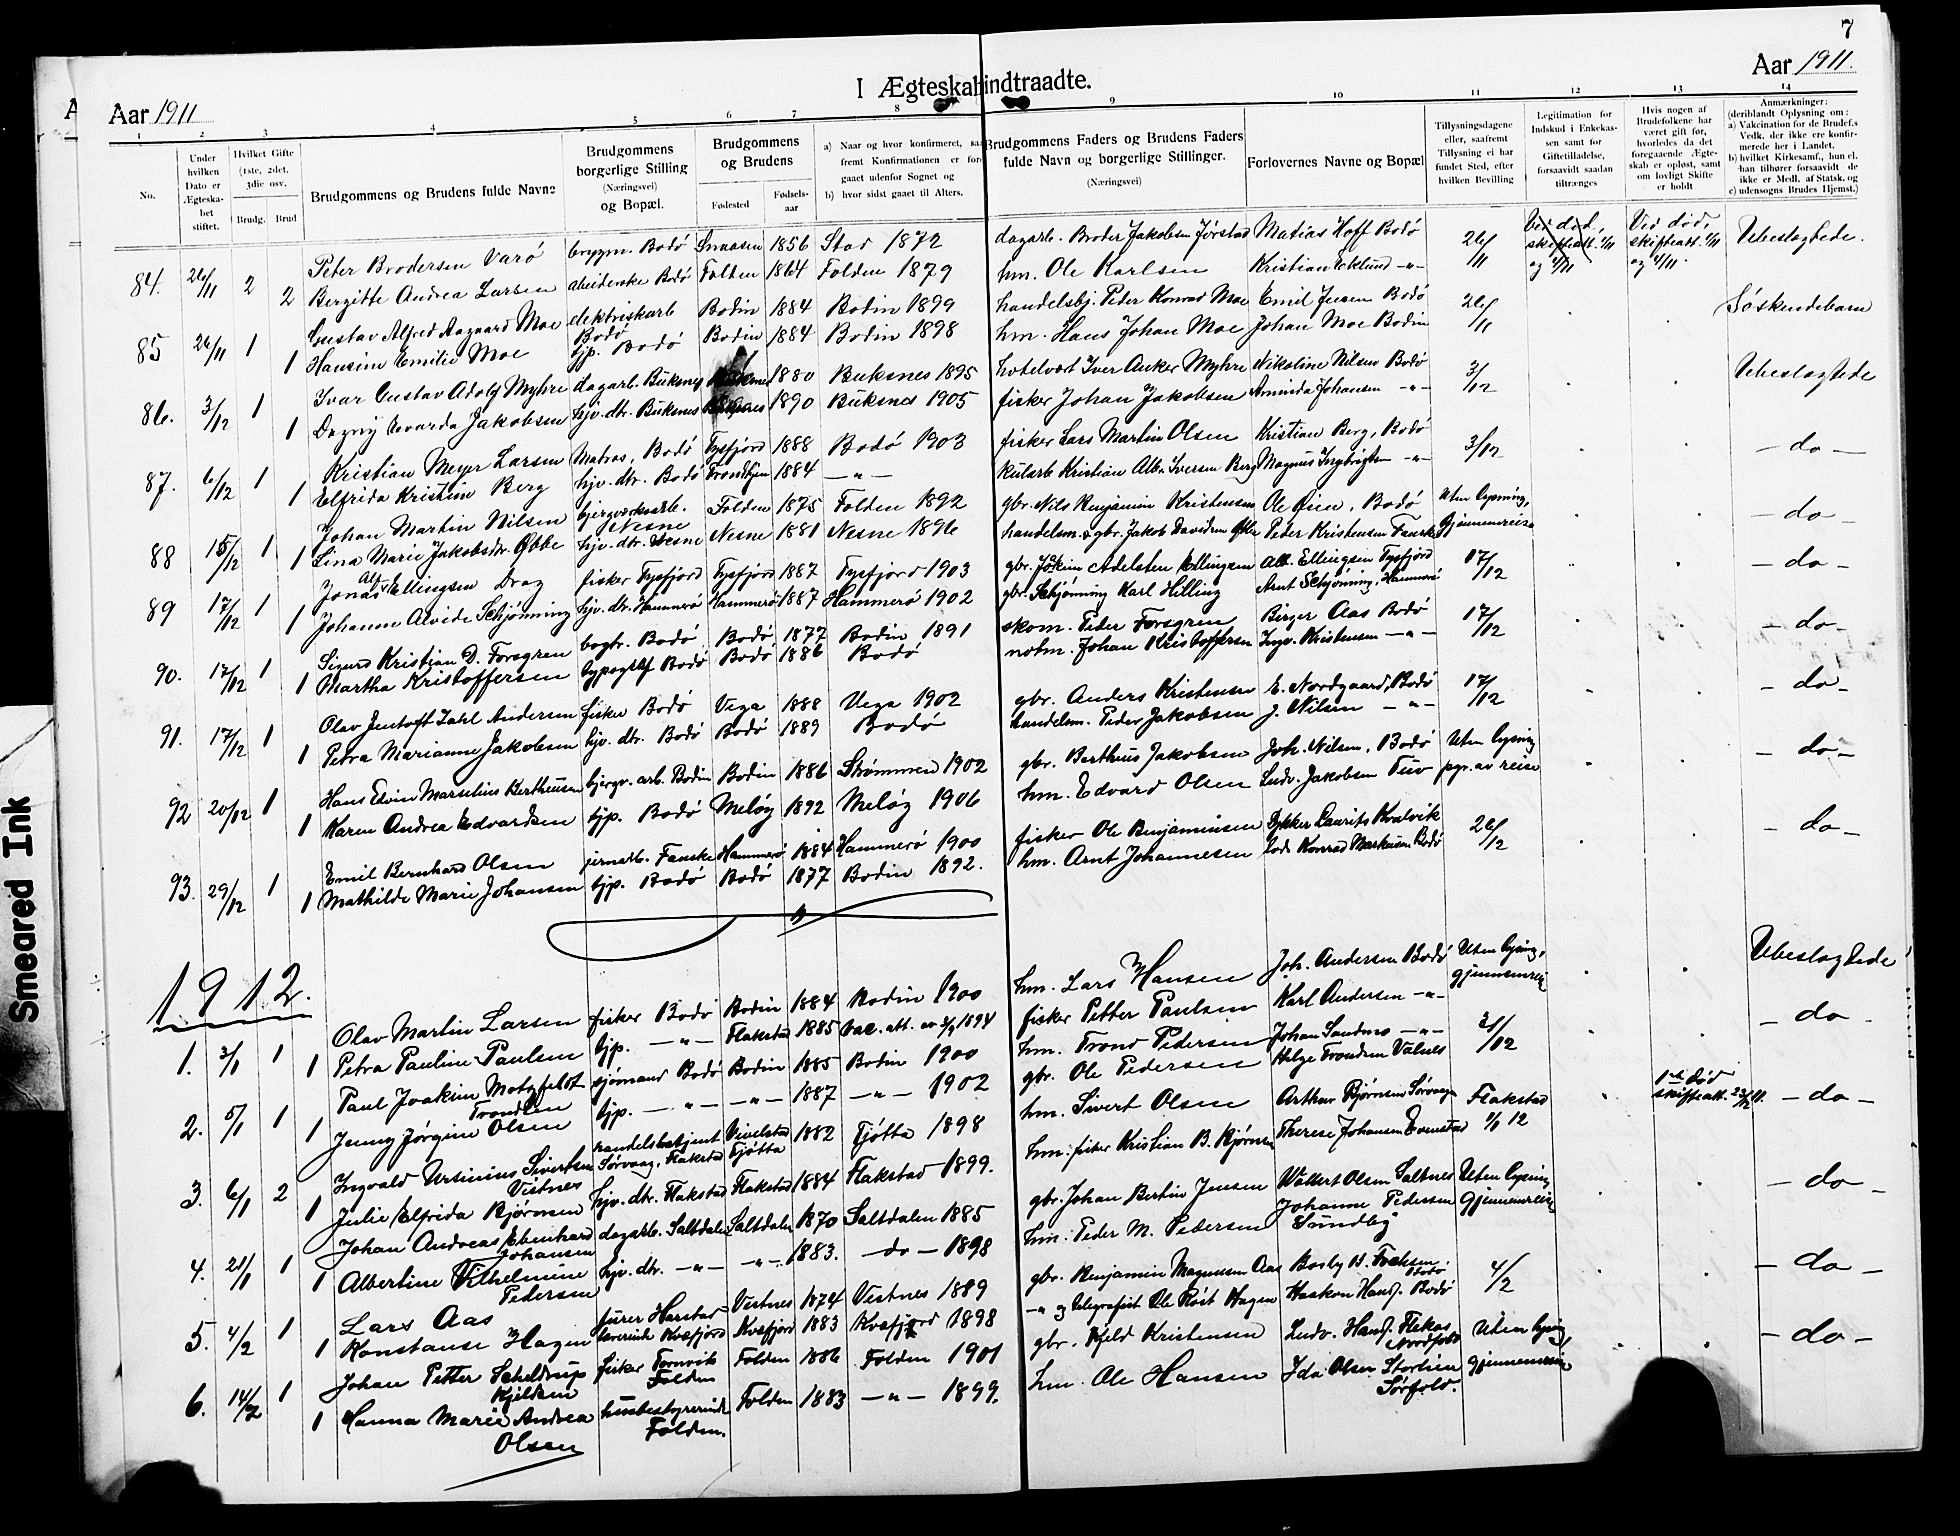 7
Aar 1911
I Ægteskab indtraadte.
Aar 1911.
1 2 3 4 5 6 7 8 9 10 11 12 13 14
No.
Under hvilken Dato er Ægteskabet stiftet.
Hvilket Gifte (1ste, 2det, 3die osv.
Brudg. Brud
Brudgommens og Brudens fulde Navne
Brudgommens borgerlige Stilling (Næringsvei) og Bopæl.
Brudgommens og Brudens
Fødested
Fødselsaar
a) Naar og hvor konfirmeret, saafremt Konfirmationen er foregaaet udenfor Sognet og
b) hvor sidst gaaet til Alters.
Brudgommens Faders og Brudens Faders fulde Navn og borgerlige Stillinger.
(Næringsvei)
Forlovernes Navne og Bopæl
Tillysningsdagene eller, saafremt Tillysning ei har fundet Sted, efter hvilken Bevilling
Legitimation for Indskud i Enkekassen samt for Giftetilladelse, forsaavidt saadan tiltrænges
Hvis nogen af Brudefolkene har været gift før, hvorledes da det foregaaende Ægteskab er opløst, samt om lovligt Skifte er holdt
Anmærkninger: (deriblandt Oplysning om:
a) Vakcination for de Brudef.s Vedk. der ikke ere konfirmerede her i Landet.
b) hvilket Kirkesamf., hun el. han tilhører forsaavidt de ikke er Medl. af Statsk. og
c) udensogns Brudes Hjemst.)
84. 26/11 2 Peter Brodersen Varø brygm. Bodø Snaasen 1856 Stod 1872 dagarb. Broder Jakobsen Jørstad Matias Hoff Bodø 26/11 Ved død, skifteatt. 1/11 og 4/11 Ved død, skifteatt. 1/11 og 4/11. Ubeslægtede.
2 Bergitte Andrea Larsen arbeiderske Bodø Folden 1864 Folden 1879 hm. Ole Karlsen Kristian Ecklund -"-
85 26/11 1 Gustav Alfred Aagaard Moe elektriskarb Bodø Bodin 1884 Bodin 1899 handelsbj. Peder Konrad Moe Emil Jensen Bodø 26/11 Søskendebarn
1 Hansine Emilie Moe tjp. Bodø Bodin 1884 Bodin 1898 hm. Hans Johan Moe Johan Moe Bodin
86. 3/12 1 Ivar Gustav Adolf Myhre dagarb. Buksnes Buksnes 1880 Buksnes 1895 hotelvært Iver Anker Myhre Nikoline Nilsen Bodø 3/12 Ubeslægtede
1 Dagny Evarda Jakobsen hjv. dtr. Buksnes Buksnes 1890 Buksnes 1905 fisker Johan Jakobsen Arminda Johansen -"-
87. 6/12 1 Kristian Meyer Larsen Matros, Bodø Tysfjord 1888 Bodø 1903 fisker Lars Martin Olsen Kristian Berg, Bodø 3/12 - do -
1 Elfrida Kristine Berg hjv. dtr. Bodø Trondhjem 1884 -"- kularb Kristian Albr. Iversen Berg Magnus Ingbrigtsen -"-
88 15/12 1 Johan Martin Nilsen bjergverksarb. Nesne Folden 1875 Folden 1892 gbr. Nils Benjamin Kristensen Ole Øien, Bodø Uten lysning, - do -
1 Lina Marie Jakobsdtr. Øbbe hjv. dtr. Nesne Nesne 1881 Nesne 1896 handelsm. & gbr. Jakob Davidsen Øbbe Peder Kristensen Fauske Gjennemreise
89 17/12 1 Jonas Alf. Ellingsen Drag fisker Tysfjord Tysfjord 1887 Tysfjord 1903 gbr. Joakim Adelsten Ellingsen Alb. Ellingsen Tysfjord 17/12 - do -
1 Johanne Alvide Schjønning hjv. dtr. Hammerø Hammerø 1887 Hammerø 1902 gbr. Schjønning Karl Hilling Arnt Schjønning, Hammerø
90. 17/12 1 Sigurd Kristian D. Forsgren bogtr. Bodø Bodø 1877 Bodin 1891 skom. Peder Forsgren Birger Aas Bodø 17/12 - do -
1 Martha Kristoffersen typogr. Bodø Bodø 1886 Bodø notm. Johan Kristoffersen Ingv. Kristensen -"-
91. 17/12 1 Olav Jentoft Zahl Andersen fisker Bodø Vega 1888 Vega 1902 gbr. Anders Kristensen E. Nordgaard, Bodø 17/12 - do -
1 Petra Marianne Jakobsen hjv. dtr. Bodø Bodø 1889 Bodø handelsm. Peder Jakobsen J. Nilsen -"-
92 20/12 1 Hans Edvin Marselius Bertheusen bjergv. arb. Bodin Bodin 1886 Strømmen 1902 gbr. Bertheus Jakobsen Joh. Nilsen, Bodø Uten lysning - do -
1 Karen Andrea Edvardsen tjp. Bodø Meløy 1892 Meløy 1906 hm. Edvard Olsen Ludv. Jakobsen Tuv pgr. av reise
93. 29/12 1 Emil Bernhard Olsen jernarb. Fauske Hammerø 1884 Hammerø 1900 fisker Ole Benjaminsen Dykker Laurits Kvalvik 26/12 - do -
1 Mathilde Marie Johansen tjp. Bodø Bodø 1877 Bodin 1892. hm. Arnt Johannesen Lods Konrad Markussen Bodø
1912.
1. 3/1 1 Olav Martin Larsen fisker Bodø Bodin 1884 Bodin 1900 hm. Lars Hansen Joh. Andersen Bodø Uten lysning, gjennemreise Ubeslægtede
1 Petra Pauline Paulsen tjp. -"- Flakstad 1885 vac. att. av 4/9 1894 fisker Petter Paulsen Karl Andersen -"-
2. 5/1 1 Paul Joakim Motzfeldt Trondsen sjømand Bodø Bodin 1885 Bodin 1900 hm. Trond Pedersen Johan Sandmo -"- 31/12 - do -
1 Jenny Jørgine Olsen tjp. -"- -"- 1887 -"- 1902 gbr. Ole Pedersen Helge Trondsen Valnes
3. 6/1 2 Ingvald Ursinius Sivertsen Vistnes handelsbetjent Sørvaag, Flakstad Vivelstad Tjøtta 1882 Tjøtta 1898 hm. Sivert Olsen Arthur Bjørnsen Sørvaagen Flakstad 1/1 12 1ste død skifteatt. 23/12 11. - do -
1 Julie Elfrida Bjørnsen hjv. dtr. Flakstad Flakstad 1884 Flakstad 1899. hm. fisker Kristian B. Bjørnsen Therese Johansen Evenstad
4. 21/1 1 Johan Andreas Ebenhard Johansen dagarb. Saltdalen Saltdalen 1870 Saltdalen 1885 gbr. Johan Bertin Jensen Wallert Olsen Saltnes Uten lysning - do -
1 Albertine Vilhelmine Pedersen hjv. dtr. -"- -"- 1883. - do - 1898 hm. Peder M. Pedersen Johanne Pedersen Sundby Gjennemreise
5. 4/2 1 Lars Aas furer Harstad Vestnes 1874 Vestnes 1889 gbr. Benjamin Magnussen Aas Bosly H. Fochsen Bodø 4/2 - do -
1 Konstanse Hagen lærerinde Kvæfjord Kvæfjord 1883 Kvæfjord 1898 -"- og telegrafist Ole Røst Hagen Haakon Hans. Bodø
6. 14/2 1 Johan Petter Scheldrup Kjeldsen fisker Tornvik Folden Folden 1886 Folden 1901 gbr. Kjeld Kristensen Ludv. Hans. Flekos Nordfold Uten lysning, - do -
1 Hanna Marie Andrea Olsen husbestyrerinde Folden. Folden 1883 -"- 1899. hm. Ole Hansen Ida Olsen Storlien Sørfold. gjennemreise
Smeared Ink